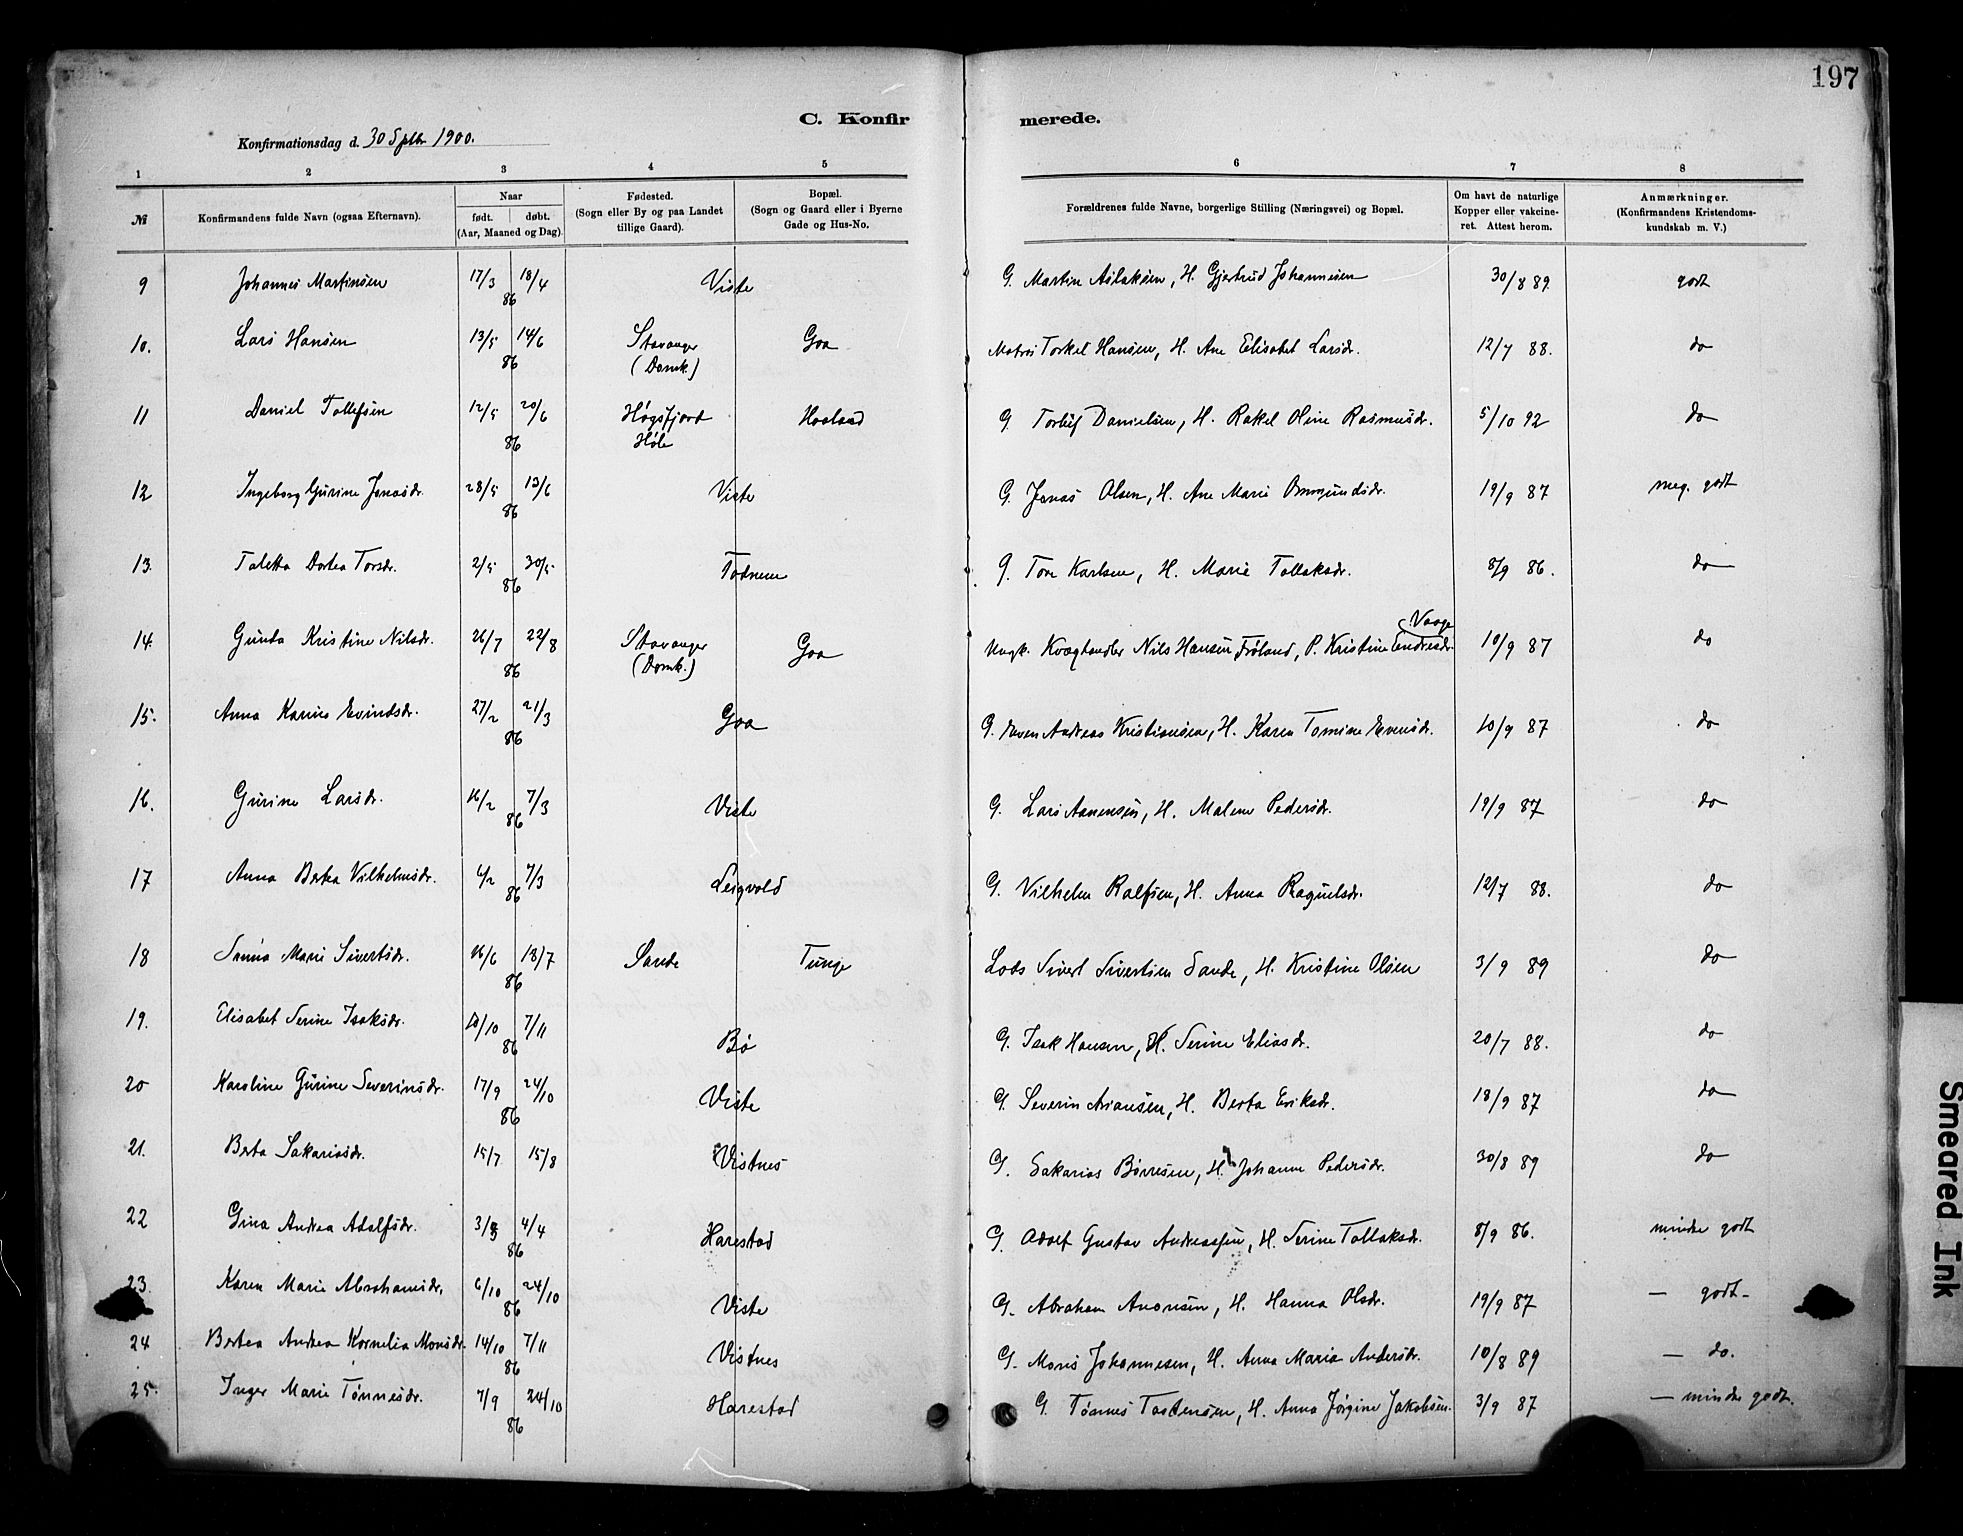 197
C. Konfir merede.
Konfirmationsdag d. 30 Septbr 1900.
1 2 3 4 5 6 7 8
№ Konfirmandens fulde Navn (ogsaa Efternavn). Naar født. døbt. (Aar, Maaned og Dag). Fødested. (Sogn eller By og paa Landet tillige Gaard). Bopæl. (Sogn og Gaard eller i Byerne Gade og Hus-No. Forældrenes fulde Navne, borgerlige Stilling (Næringsvei) og Bopæl. Om havt de naturlige Kopper eller vakcineret. Attest herom. Anmærkninger. (Konfirmandens Kristendomskundskab m. V.)
9 Johannes Martinsen 17/3 18/4 86 Viste G. Martin Aslaksen, H. Gjertrud Johannesen 30/8 89. godt
10. Lars Hansen 13/5 14/6 86 Stavanger (Domk.) Goa Matros Torkel Hansen, H. Ane Elisabet Larsdr. 12/7 88. do
11 Daniel Tollefsen 12/5 20/6 86 Høgsfjord Høle Haaland G. Danielsen, H. Rakel Oline Rasmusdr. 5/10 92 do
12 Ingeborg Gurine Jonasdr. 28/5 13/6 86 Viste G. Jonas Olsen, H. Ane Marie Ommundsdr. 19/9 87 meg. godt
13. Taletta Dortea Torsdr. 2/5 30/5 86 Todnem G. Tore Karlsen, H. Marie Tollaksdr. 8/9 86. do
14. Gunda Kristine Nilsdr. 26/7 22/8 86 Stavanger (Domk.) Goa Ungk. Kvæghandler Nils Hansen Frøland, P. Kristine Endresdr. Vaage 10/9 87 do
15. Anna Karine Evindsdr. 27/2 21/3 86 Goa G. Even Andreas Kristiansen, H. Karen Tomine Evensdr. 10/9 87 do
16. Gurine Larsdr. 16/2 7/3 86 Viste G. Lars Aanensen, H. Malene Pedersdr. 19/9 87 do
17 Anna Berta Vilhelmsdr. 4/2 7/3 86 Leigvold G. Vilhelm Ralfsen, H. Anna Raguelsdr. 12/7 88. do
18 Sanna Marie Sivertsdr. 16/6 18/7 86 Sande Tunge Lods Sivert Sivertsen Sande, H. Kristine Olsen 3/9 89 do
19. Elisabet Serine Isaksdr. 10/10 7/11 86 Bø G. Isak Hansen, H. Serine Eliasdr. 20/7 88. do
20 Karoline Gurine Severinsdr. 17/9 24/10 86 Viste G. Severin Ariansen, H. Berta Eriksdr. 18/9 87 do
21. Berta Sakariasdr. 15/7 15/8 Vistnes G. Sakarias Børresen, H. Johanne Pedersdr. 30/8 89 do
22 Gina Andrea Adolfsdr. 3/3 4/4 86 Harestad G. Adolf Gustav Andreassen, H. Serine Tollaksdr. 8/9 86. mindre godt
23. Karen Marie Abrahamsdr. 6/10 24/10 86 Viste G. Abraham Anonsen, H. Hanna Olsdr. 19/9 87 — godt -
24 Bertea Andrea Kornelia Monsdr. 14/10 7/11 86 Vistnes G. Mons Johannesen, H. Anna Maria Andersdr. 10/8 89 — do.
25. Inger Marie Tønnesdr. 7/9 24/10 86 Harestad G. Tønnes Tostensen, H. Anna Jørgine Jakobsen. 3/9 87 — mindre godt.
Smeared Ink